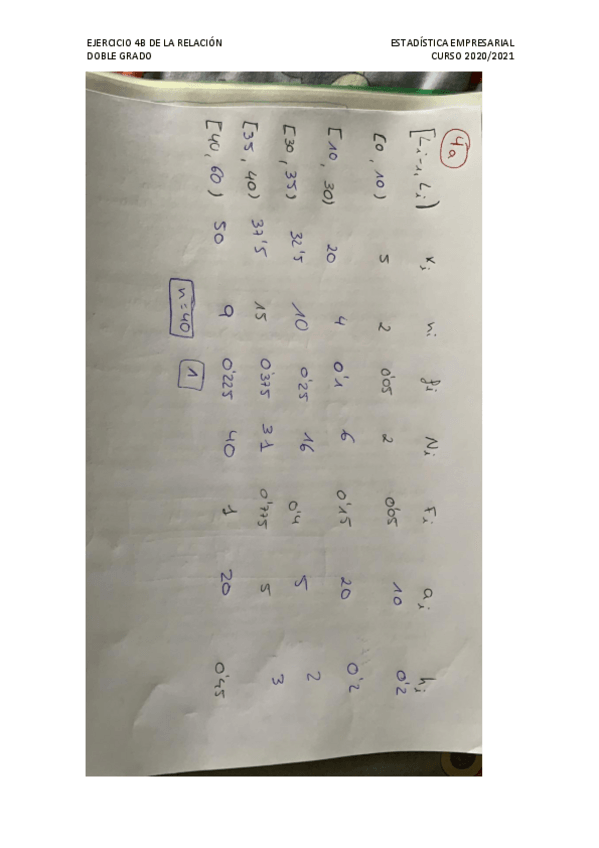 EJERCICIO 4B DE LA RELACIÓN
DOBLE GRADO
ESTADÍSTICA EMPRESARIAL
CURSO 2020/2021
4a
[Li-1, Li) xi ni fi Ni Fi ai hi
[0, 10) 5 2 0'05 2 0'05 10 0'2
[10, 30) 20 4 0'1 6 0'15 20 0'2
[30, 35) 32'5 10 0'25 16 0'4 5 2
[35, 40) 37'5 15 0'375 31 0'775 5 3
[40, 60) 50 9 0'225 40 1 20 0'45
n=40 1